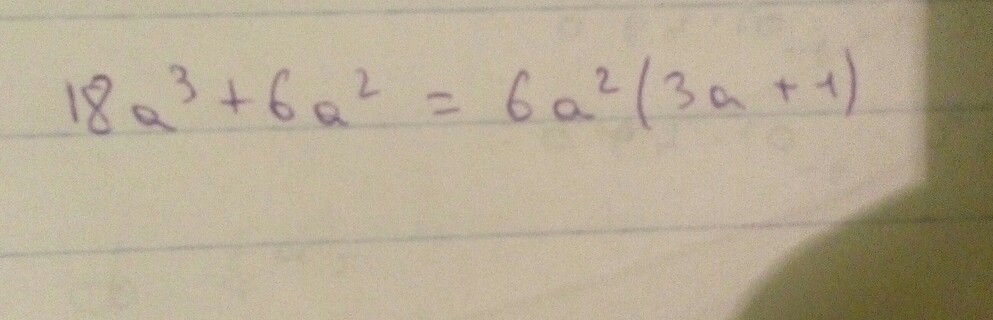 18a³ + 6a² = 6a²(3a + 1)